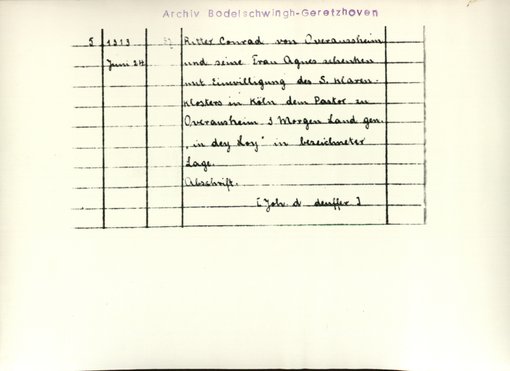 Archiv Bodelschwingh-Geretzhoven
5 1313 Ritter Conrad von Overaussheim
Juni 24 und seine Frau Agnes schenken
mit Einwilligung des S. Klaren-
Klosters in Köln dem Pastor zu
Overausheim 3 Morgen Land gen.
„in dey Loy" in bezeichneter
Lage.
Abschrift.
[Joh. d deuffer]